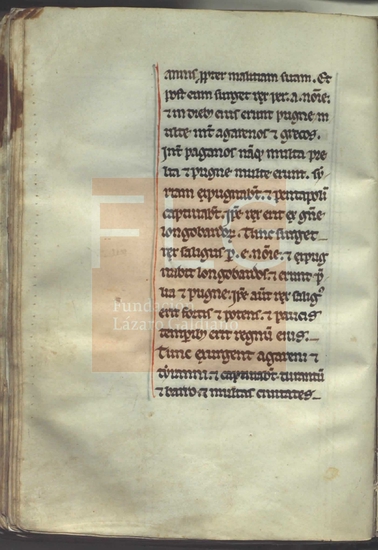 annis ꝓpter malitiam suam. Et
post eum surget rex per .a. noīe.
⁊ in dieb eius erunt pugne m
ulte int̄ agarenos ⁊ grecos.
Int̄ paganos nāq multa pre
lia ⁊ pugne multe erunt. sy
riam expugnabt̄. ⁊ pentapolī
captiuabt̄. ip̄e rex erit ex gn̄e
longobardoꝝ. Tunc surget
rex saligus p̄. e. noīe. ⁊ expug
nabit longobardos. ⁊ erunt p̄
lia ⁊ pugne. ip̄e aūt rex saligꝰ
erit fortis ⁊ potens. ⁊ paucis
tempib erit regnū eius.
Tunc exurgent agareni ⁊
tyranni. ⁊ captiuabt̄. tarantū
⁊ barro ⁊ multas ciuitates
Fundación
Lázaro Galdiano